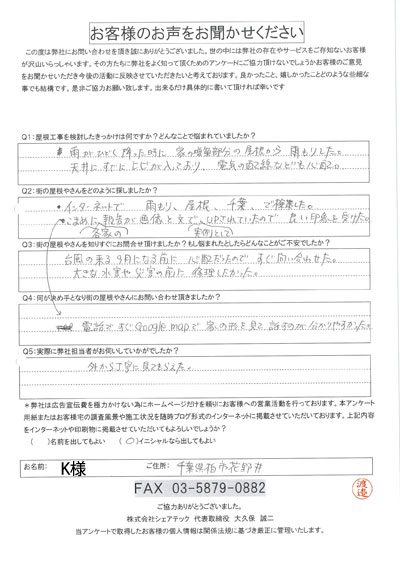 お客様のお声をお聞かせください
この度は弊社にお問い合わせを頂き誠にありがとうございました。世の中には弊社の存在やサービスをご存知ないお客様
が沢山いらっしゃいます。その方たちに弊社をよく知って頂くためのアンケートにご協力頂けないでしょうかお客様のご意見
をお聞かせいただき今後の活動に反映させていただきたいと考えております。良かったこと、嬉しかったことどのような些細な
事でも結構です。是非ご協力お願い致します。出来るだけ具体的に書いて頂ければ幸いです
Q1:屋根工事を検討したきっかけは何ですか?どんなことで悩まれていましたか?
・雨がひどく降った時に家の増築部分の屋根から雨もりした。
天井にすでにヒビが入っており、電気の配線なども心配。
Q2:街の屋根やさんをどのように探しましたか?
・インターネットで 雨もり、屋根、千葉、で検索した。
・こまめに報告が画像と文でUPされていたので良い印象を受けた。
各家の 実例として
Q3:街の屋根やさんを知りすぐにお問合せ頂けましたか?もし悩まれたとしたらどんなことがご不安でしたか?
台風の来る9月になる前に心配だったのですぐ問い合わせた。
大きな水害や災害の前に修理したかった。
Q4:何が決め手となり街の屋根やさんにお問い合わせ頂きましたか?
電話ですぐGoogle mapで家の形を見て話すのが分かりやすかった。
Q5:実際に弊社担当者がお伺いしていかがでしたか?
外から丁寧に見てもらえた。
*弊社は広告宣伝費を極力かけない為にホームページだけを頼りにお客様への営業活動を行っております。本アンケート
用紙またはお客様宅の調査風景や施工状況を随時ブログ形式のインターネットに掲載させていただいております。上記内容
をインターネットや印刷物に掲載させていただいてもよろしいでしょうか?
( )名前を出してもよい (○)イニシャルなら出してもよい
お名前: K様 ご住所: 千葉県柏市花野井
FAX 03-5879-0882
渡邉
ご協力ありがとうございました。
株式会社シェアテック 代表取締役 大久保 誠二
当アンケートで取得したお客様の個人情報は関係法規に基づき厳正に管理いたします。